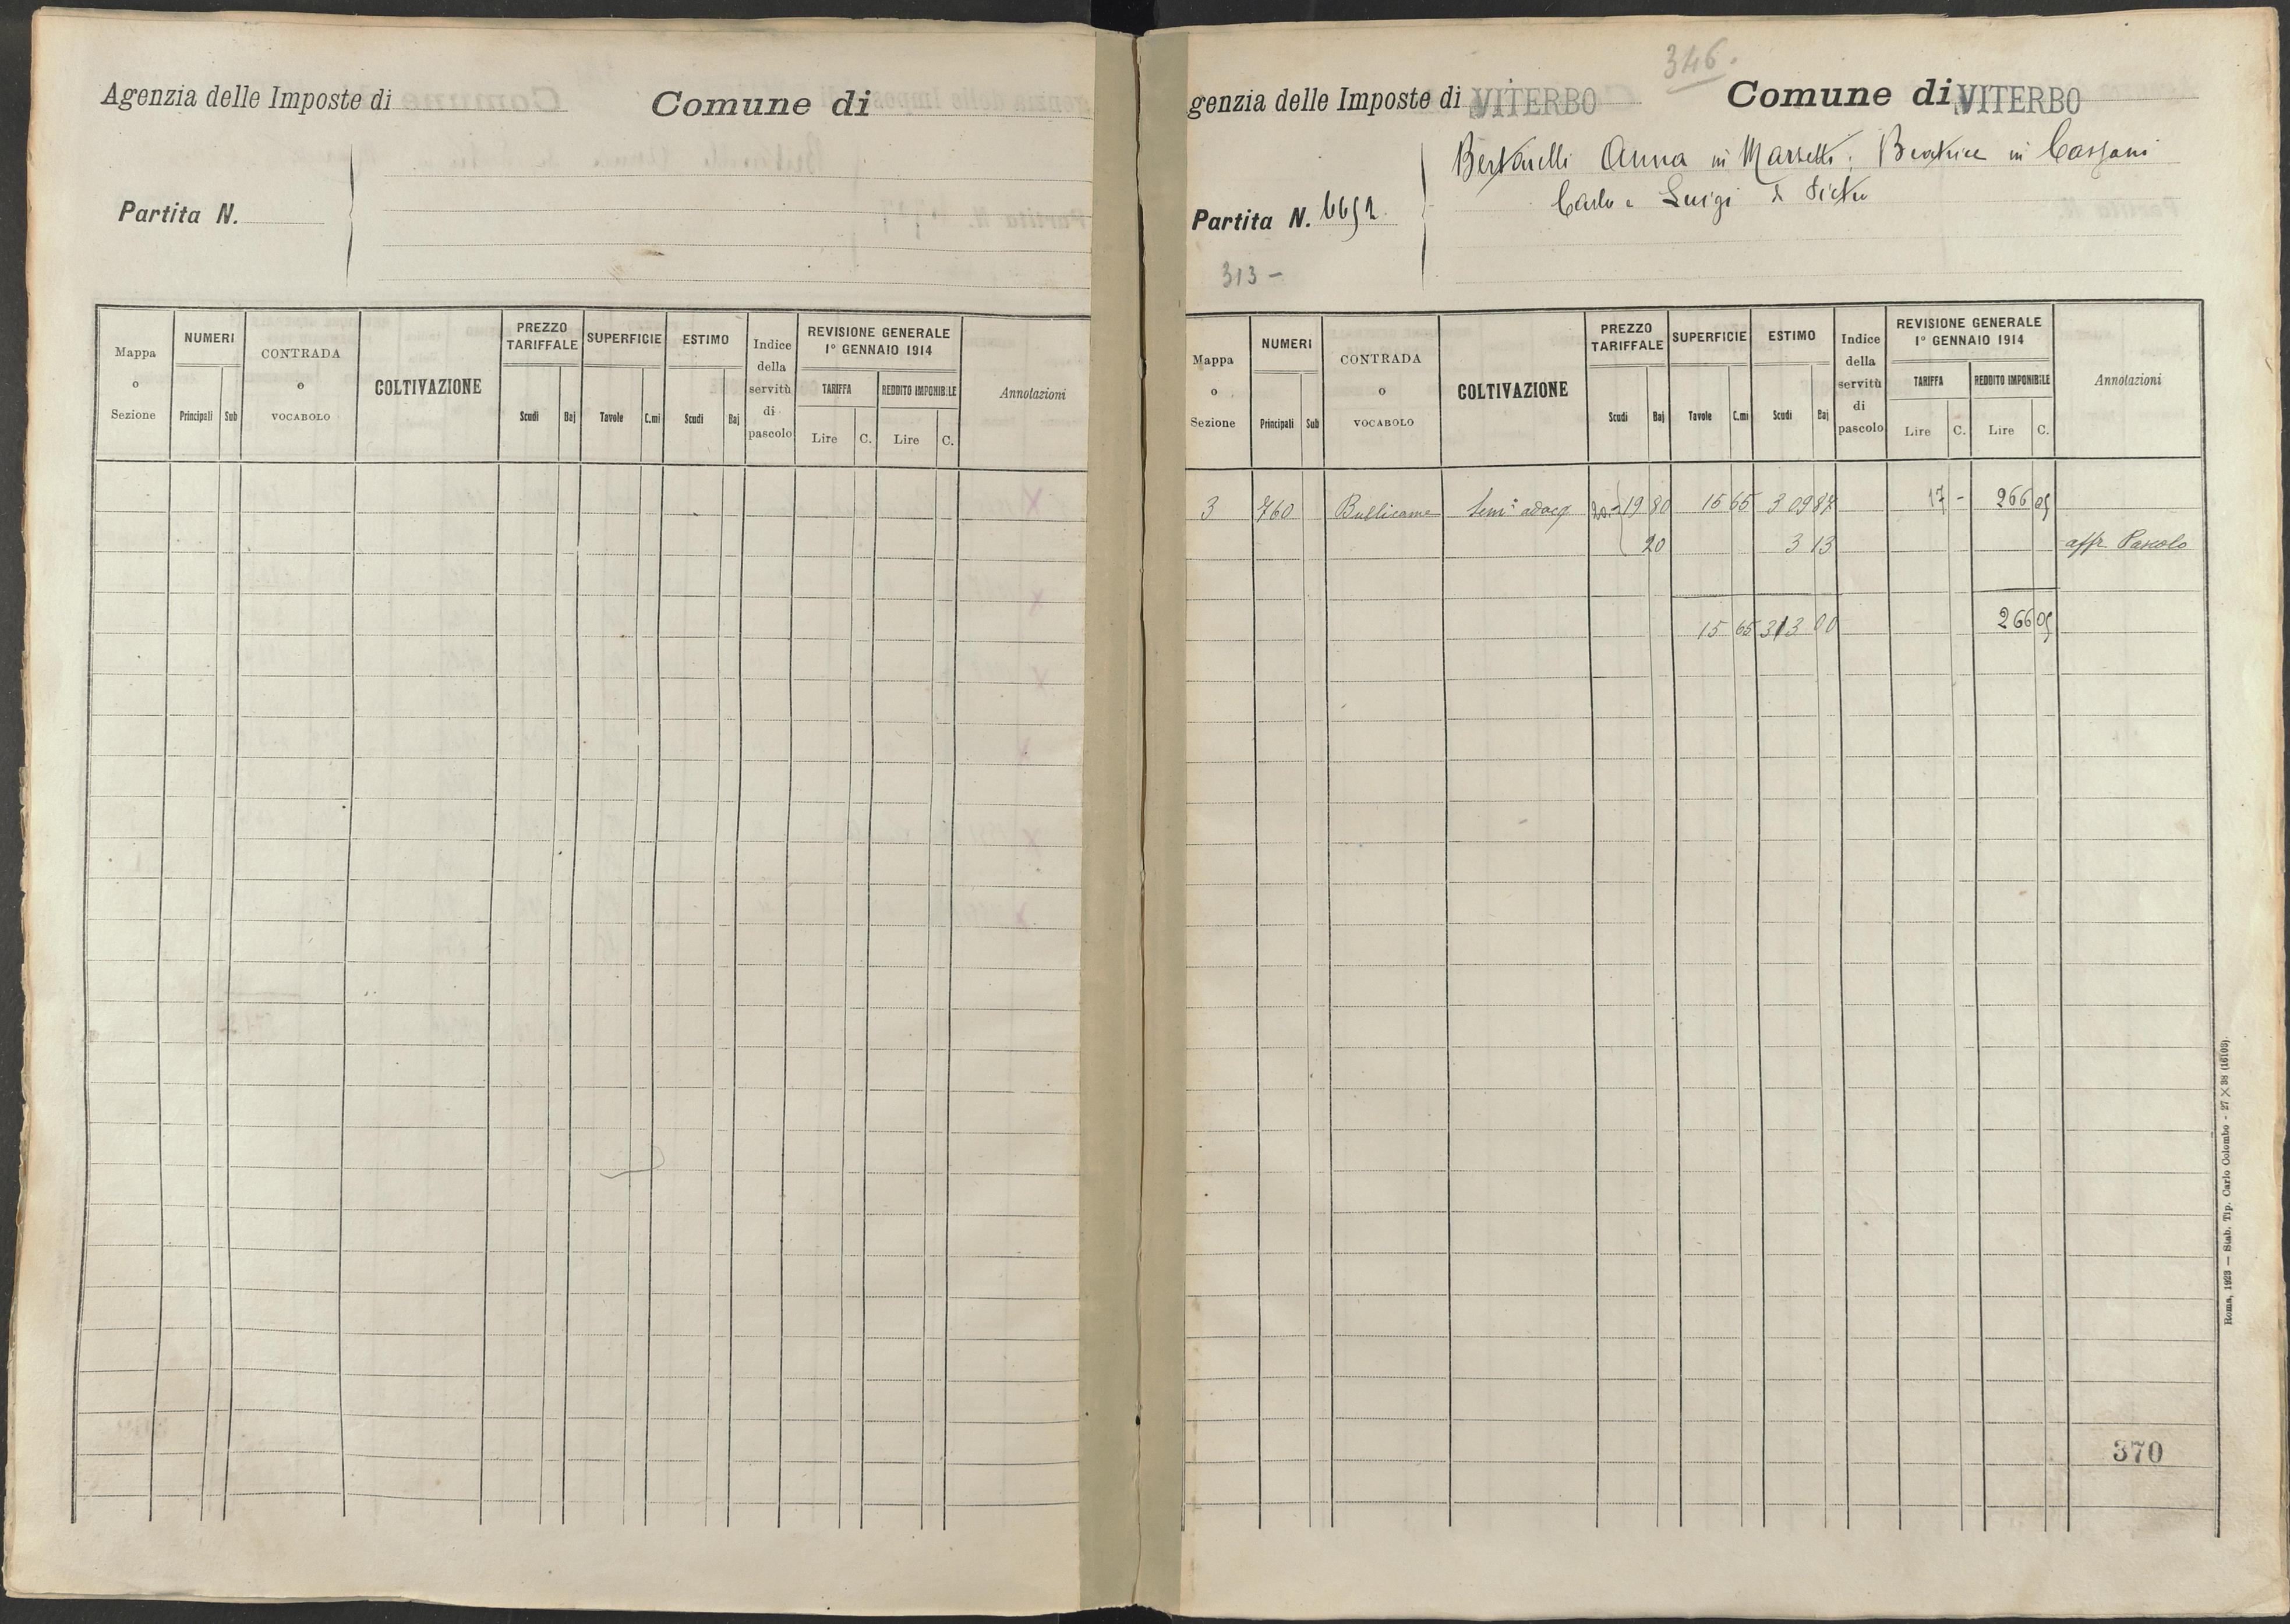 Agenzia delle Imposte di
Comune di
Partita N.
Mappa o Sezione
NUMERI
Principali Sub
CONTRADA o VOCABOLO
COLTIVAZIONE
PREZZO TARIFFALE
Scudi Baj
SUPERFICIE
Tavole C.mi
ESTIMO
Scudi Baj
Indice della servitù di pascolo
REVISIONE GENERALE
1° GENNAIO 1914
TARIFFA
Lire C.
REDDITO IMPONIBILE
Lire C.
Annotazioni
346.
genzia delle Imposte di VITERBO
Comune di VITERBO
Bertarelli Anna in Marzetti, Beatrice in Cassani
Carlo e Luigi di Pietro
Partita N. 6652
313 -
Mappa o Sezione
NUMERI
Principali Sub
CONTRADA o VOCABOLO
COLTIVAZIONE
PREZZO TARIFFALE
Scudi Baj
SUPERFICIE
Tavole C.mi
ESTIMO
Scudi Baj
Indice della servitù di pascolo
REVISIONE GENERALE
1° GENNAIO 1914
TARIFFA
Lire C.
REDDITO IMPONIBILE
Lire C.
Annotazioni
3 760 Bullicame Sem: adacq 20 - 19 80 15 65 309 87 17 - 266 05
20 3 13 affr. Pascolo
15 65 313 00 266 05
370
Roma, 1923 — Stab. Tip. Carlo Colombo - 27 × 38 (16103).